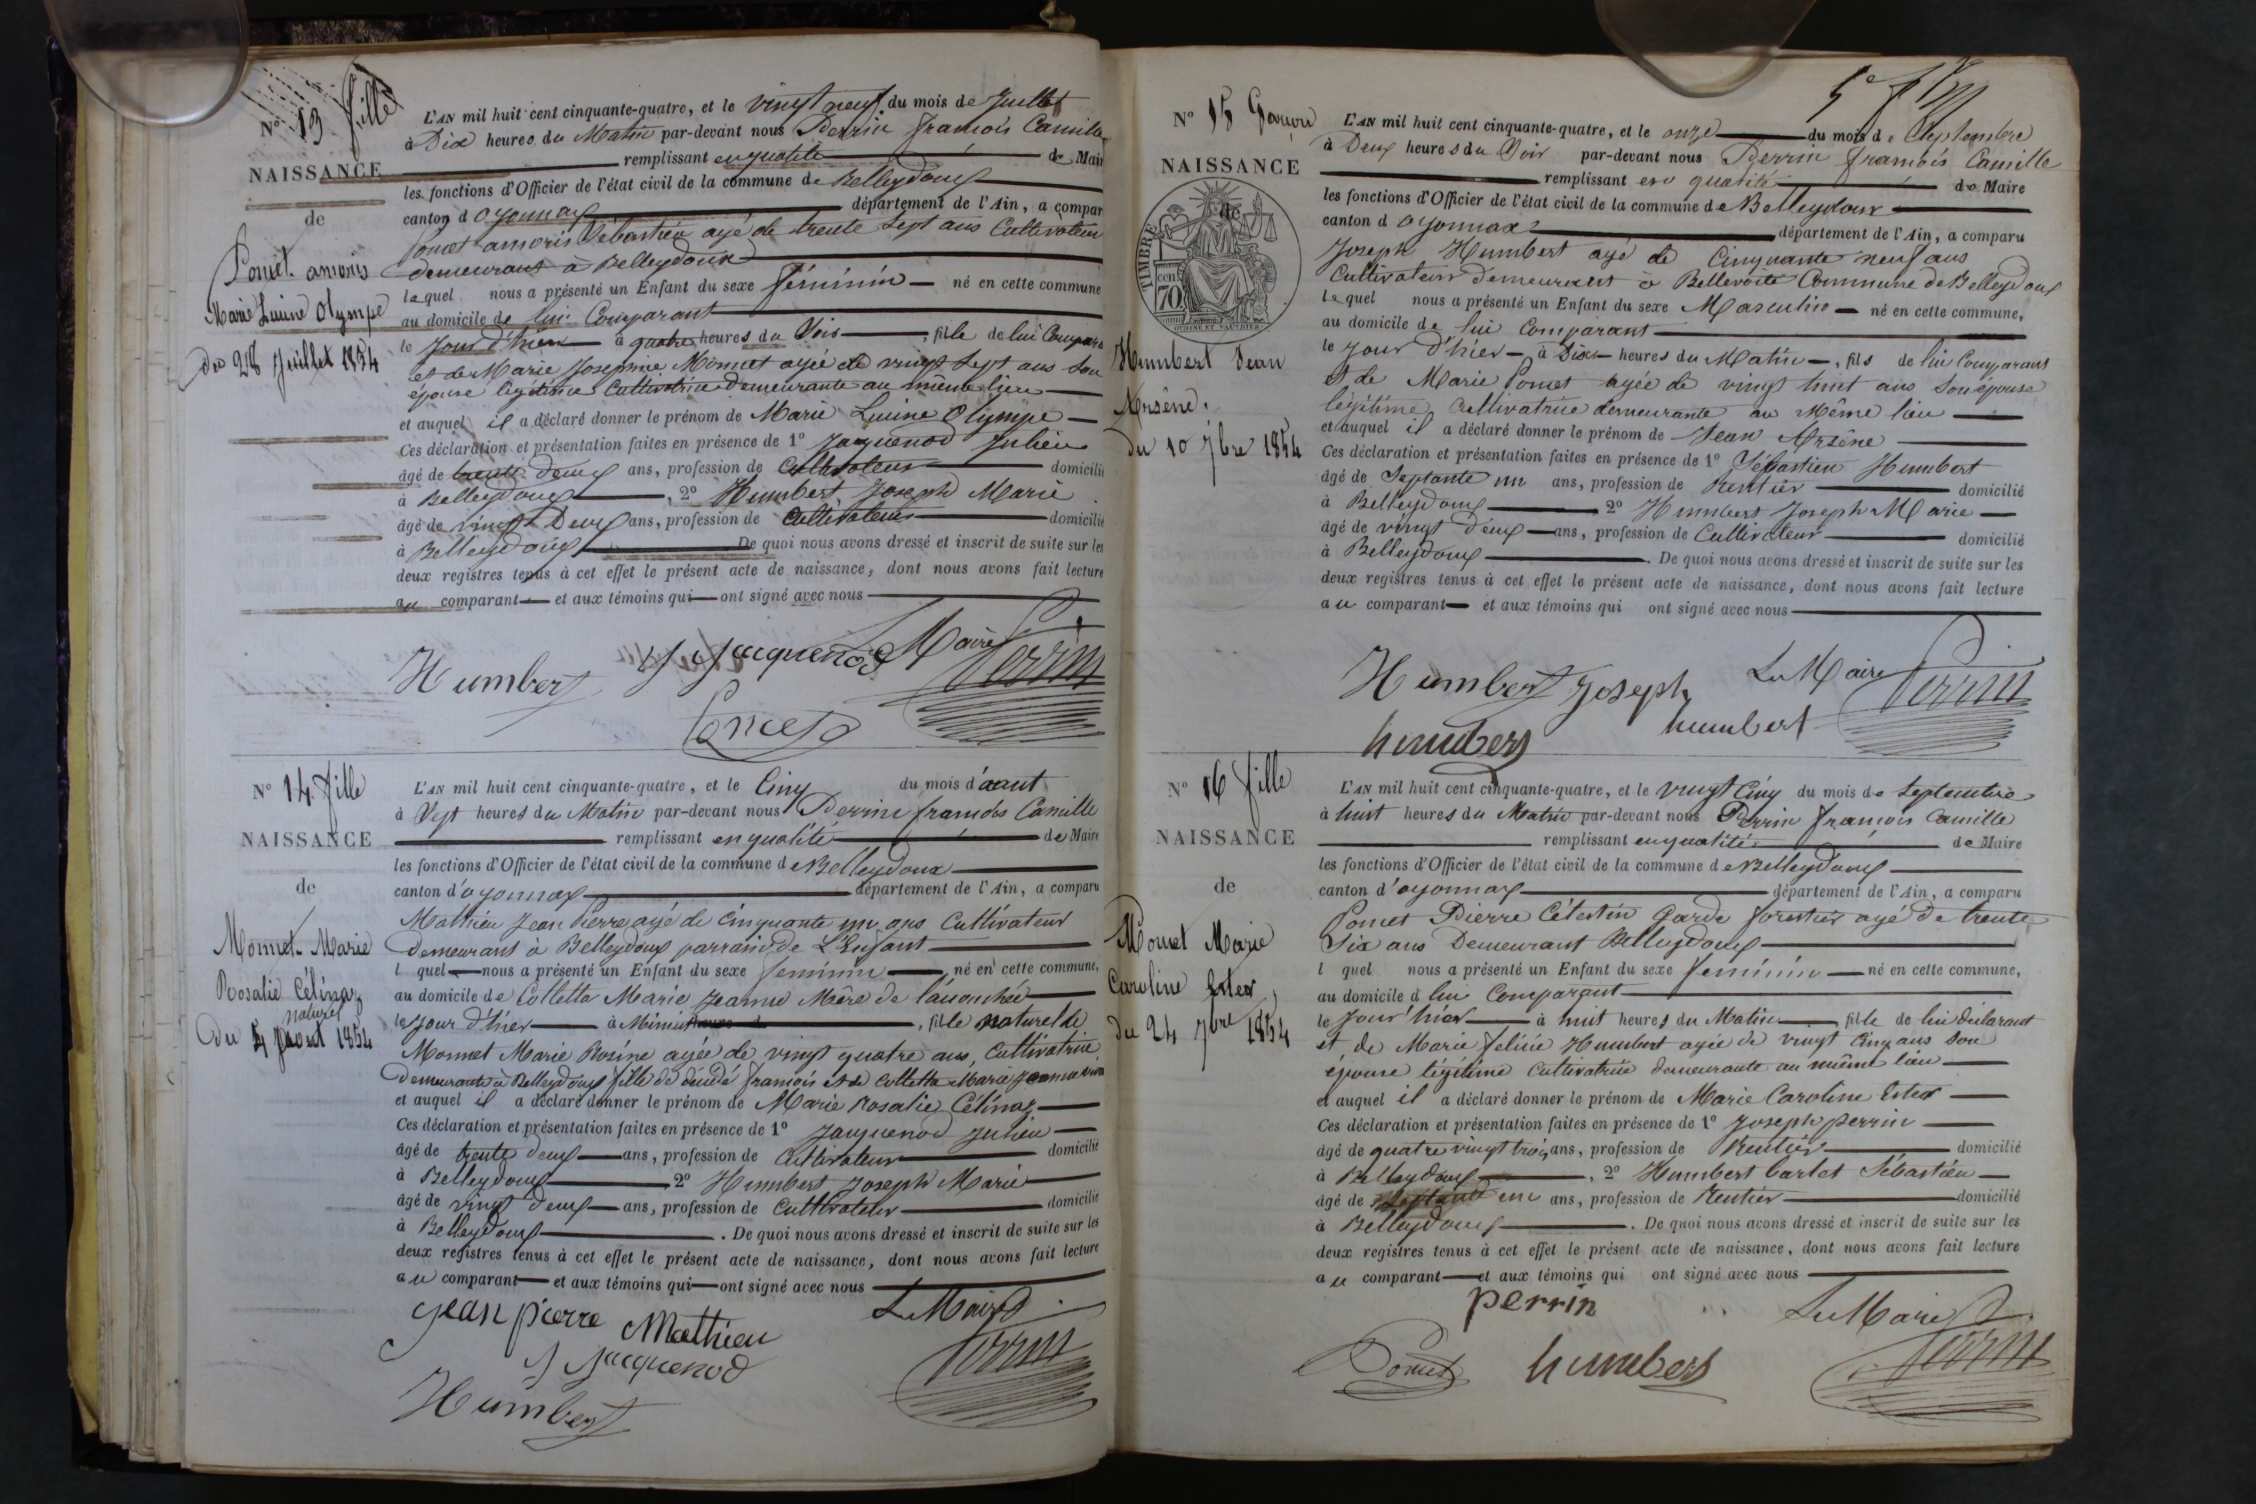 N° 13 fille
NAISSANCE
de
Pomet. amoris
Marie Lucine Olympe
du 28 Juillet 1854
L'AN mil huit cent cinquante-quatre, et le vingt neuf du mois de Juillet
à Dix heures du Matin par-devant nous Perrin françois Camille
remplissant en qualité de Mair
les fonctions d'Officier de l'état civil de la commune de Belleydoux
canton d'oyonnax département de l'Ain, a compar
Pomet amoris Sébastien agé de trente sept ans Cultivateur
demeurant à Belleydoux
lequel nous a présenté un Enfant du sexe féminin né en cette commune
au domicile de lui Comparant
le jour d'hier à quatre heures du Soir, fille de lui Compara
et de Marie Josephine Monnet agée de vingt sept ans son
épouse légitime Cultivatrice demeurante au même lieu
et auquel il a déclaré donner le prénom de Marie Lucine Olympe
Ces déclaration et présentation faites en présence de 1° Jacquenod Julien
âgé de trente deux ans, profession de Cultivateur domicilié
à Belleydoux, 2° Humbert Joseph Marie
âgé de vingt Deux ans, profession de Cultivateur domicilié
à Belleydoux De quoi nous avons dressé et inscrit de suite sur les
deux registres tenus à cet effet le présent acte de naissance, dont nous avons fait lecture
au comparant et aux témoins qui ont signé avec nous
Humbert J Jacquenod Maire Perrin
Pomet
N° 14 fille
NAISSANCE
de
Monnet Marie
Rosalie Célinaz
naturel
du 4 aout 1854
L'AN mil huit cent cinquante-quatre, et le Cinq du mois d'aout
à Sept heures du Matin par-devant nous Perrin françois Camille
remplissant en qualité de Maire
les fonctions d'Officier de l'état civil de la commune de Belleydoux
canton d'oyonnax département de l'Ain, a comparu
Mathieu Jean Pierre agé de Cinquante un ans Cultivateur
demeurant à Belleydoux parrain de L'Enfant
l quel nous a présenté un Enfant du sexe feminin né en cette commune,
au domicile de Colletta Marie Jeanne Mère de l'accouchée
le jour d'hier à Minuit, fille naturel de
Monnet Marie Rosine agée de vingt quatre ans, Cultivatrice
demeurante à Belleydoux fille de décédé françois et de Colletta Marie Jeanne
et auquel il a déclaré donner le prénom de Marie Rosalie Célinaz
Ces déclaration et présentation faites en présence de 1° Jacquenod Julien
âgé de trente deux ans, profession de Cultivateur domicilié
à Belleydoux 2° Humbert Joseph Marie
âgé de vingt deux ans, profession de Cultivateur domicilié
à Belleydoux. De quoi nous avons dressé et inscrit de suite sur les
deux registres tenus à cet effet le présent acte de naissance, dont nous avons fait lecture
au comparant et aux témoins qui ont signé avec nous
Jean pierre Mathieu Le Maire
J Jacquenod Perrin
Humbert
5e
N° 15 Garçon
NAISSANCE
de
TIMBRE
cen
70
Humbert Jean
Arsène.
du 10 7bre 1854
L'AN mil huit cent cinquante-quatre, et le onze du mois de Septembre
à Deux heures du Soir par-devant nous Perrin françois Camille
remplissant en qualité de Maire
les fonctions d'Officier de l'état civil de la commune de Belleydoux
canton d'oyonnax département de l'Ain, a comparu
Joseph Humbert agé de Cinquante neuf ans
Cultivateur demeurant à Bellevoite Commune de Belleydoux
lequel nous a présenté un Enfant du sexe Masculin né en cette commune,
au domicile de lui Comparant
le jour d'hier à Dix heures du Matin, fils de lui Comparant
et de Marie Pomet agée de vingt huit ans son épouse
légitime Cultivatrice demeurante au Même lieu
et auquel il a déclaré donner le prénom de Jean Arsène
Ces déclaration et présentation faites en présence de 1° Sébastien Humbert
âgé de Septante un ans, profession de Rentier domicilié
à Belleydoux 2° Humbert Joseph Marie
âgé de vingt deux ans, profession de Cultivateur domicilié
à Belleydoux. De quoi nous avons dressé et inscrit de suite sur les
deux registres tenus à cet effet le présent acte de naissance, dont nous avons fait lecture
au comparant et aux témoins qui ont signé avec nous
Humbert Joseph Le Maire Perrin
humbert humbert
N° 16 fille
NAISSANCE
de
Pomet Marie
Caroline Ester
du 24 7bre 1854
L'AN mil huit cent cinquante-quatre, et le vingt Cinq du mois de Septembre
à huit heures du Matin par-devant nous Perrin françois Camille
remplissant en qualité de Maire
les fonctions d'Officier de l'état civil de la commune de Belleydoux
canton d'oyonnax département de l'Ain, a comparu
Pomet Pierre Célestin Garde forestier agé De trente
Six ans Demeurant Belleydoux
l quel nous a présenté un Enfant du sexe féminin né en cette commune,
au domicile d lui Comparant
le jour'hier à huit heures du Matin, fille de lui déclarant
et de Marie félicie Humbert agée de vingt Cinq ans son
épouse légitime Cultivatrice demeurante au même lieu
et auquel il a déclaré donner le prénom de Marie Caroline Ester
Ces déclaration et présentation faites en présence de 1° Joseph perrin
âgé de quatre vingt trois ans, profession de Rentier domicilié
à Belleydoux, 2° Humbert Carlet Sébastien
âgé de Septante un ans, profession de Rentier domicilié
à Belleydoux. De quoi nous avons dressé et inscrit de suite sur les
deux registres tenus à cet effet le présent acte de naissance, dont nous avons fait lecture
au comparant et aux témoins qui ont signé avec nous
perrin Le Maire
Pomet humbert Perrin